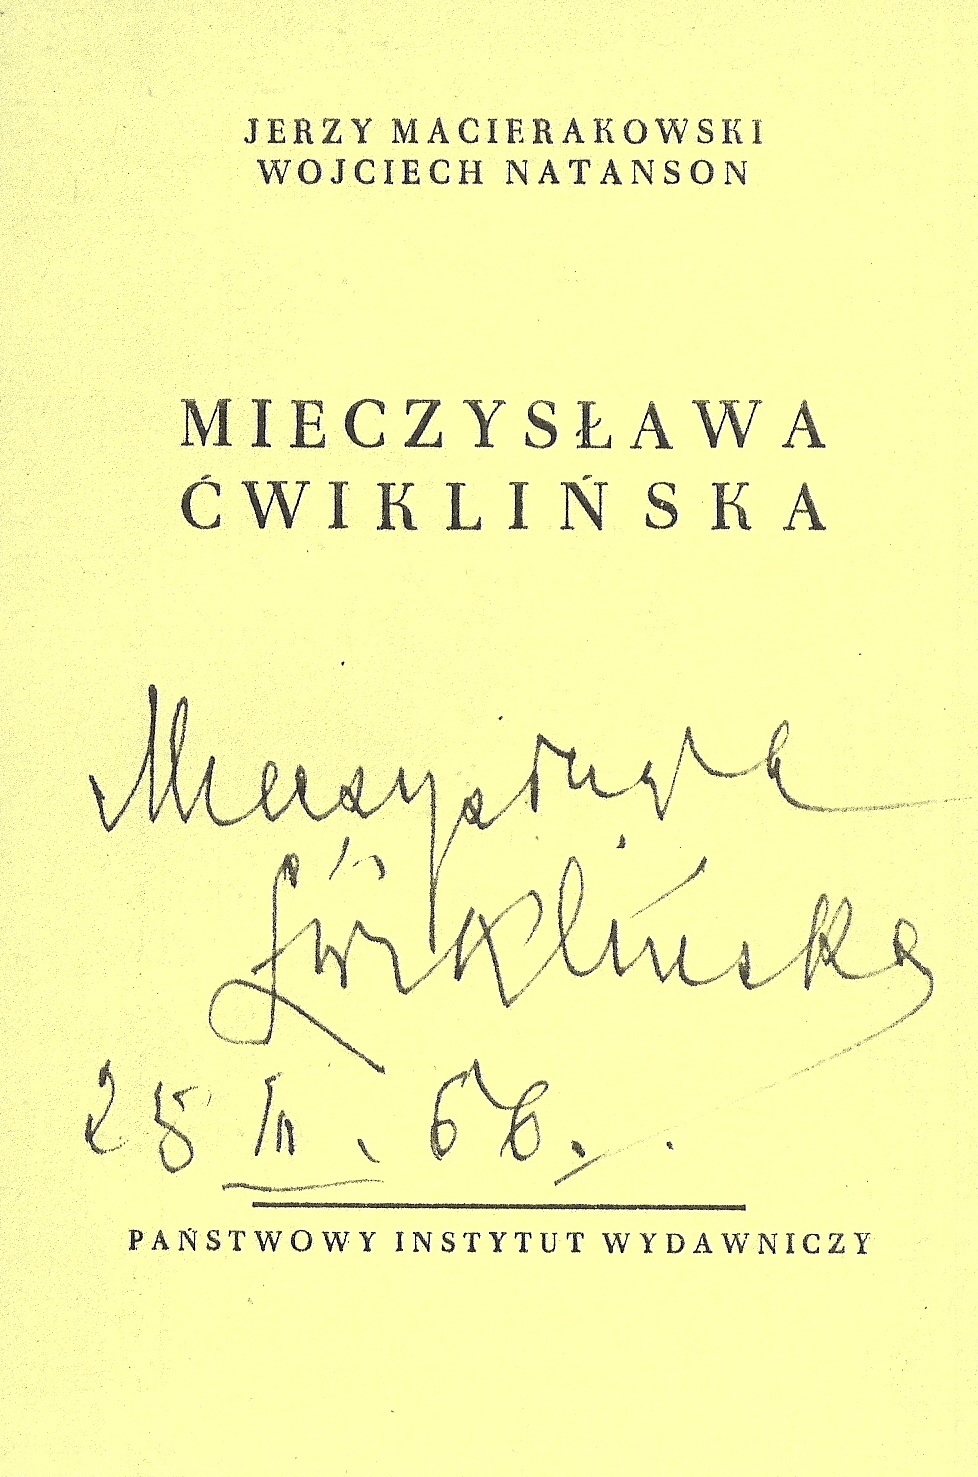 JERZY MACIERAKOWSKI
WOJCIECH NATANSON
MIECZYSŁAWA
ĆWIKLIŃSKA
Mieczysława
Ćwiklińska
28 III. 66.
PAŃSTWOWY INSTYTUT WYDAWNICZY